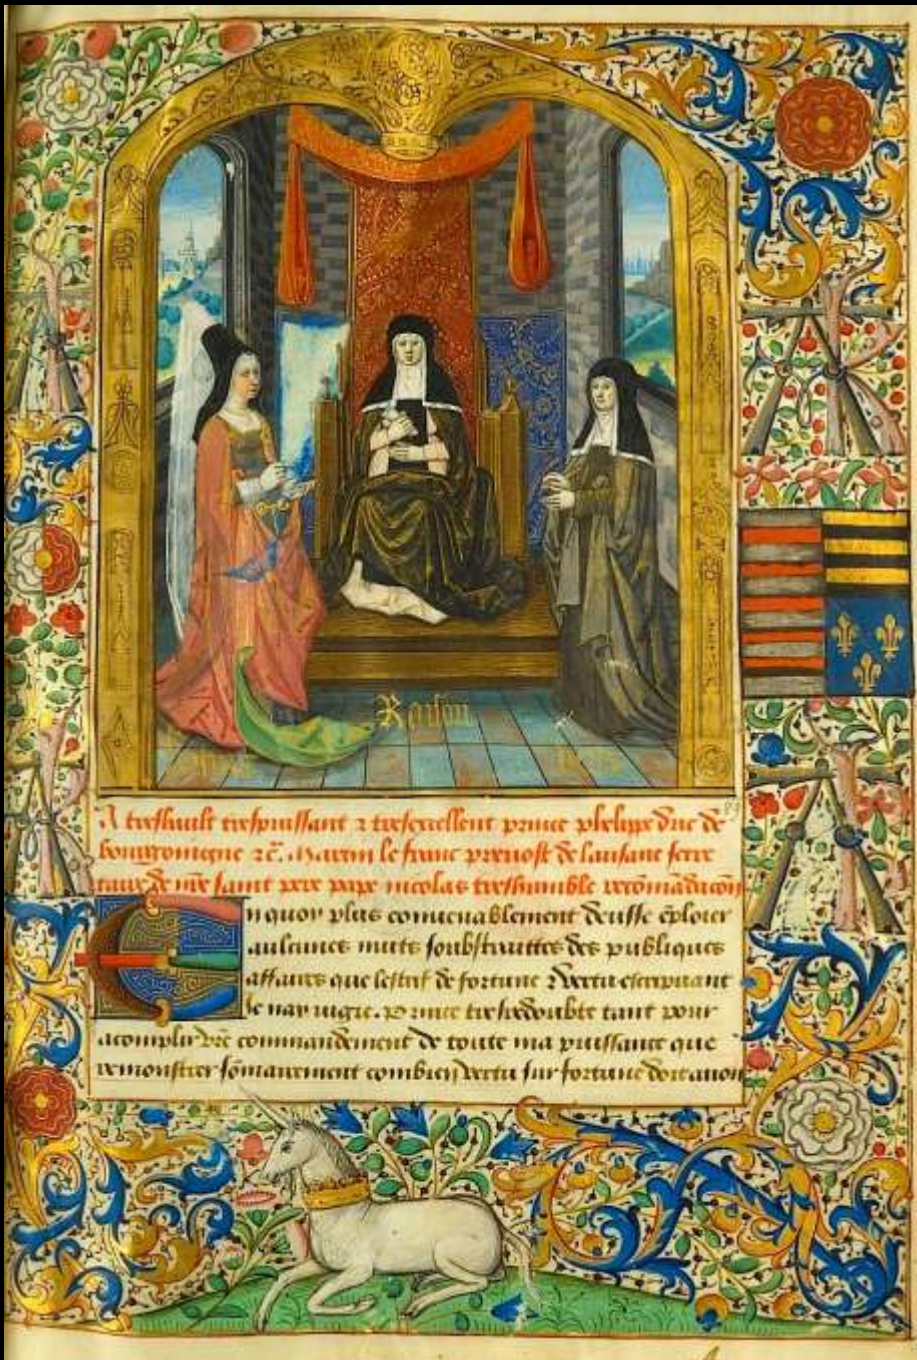 Raison
A treshault trespuissant & tresexcellent prince phelippe duc de
bourgoingne &c̃. Martin le franc prevost de lausane secre
taire de nr̃e saint pere pape nicolas treshumble recomãdacion
En quoy plus convenablement deusse ẽploier
aulcunes nuits soubstraittes des publiques
affaires que lestrif de fortune & vertu escripvant
je nay
prince tresredoubte tant pour
acomplir vr̃e commandement de toute ma puissance que
remonstrer sõmairement combien vertu sur fortune doit avoir